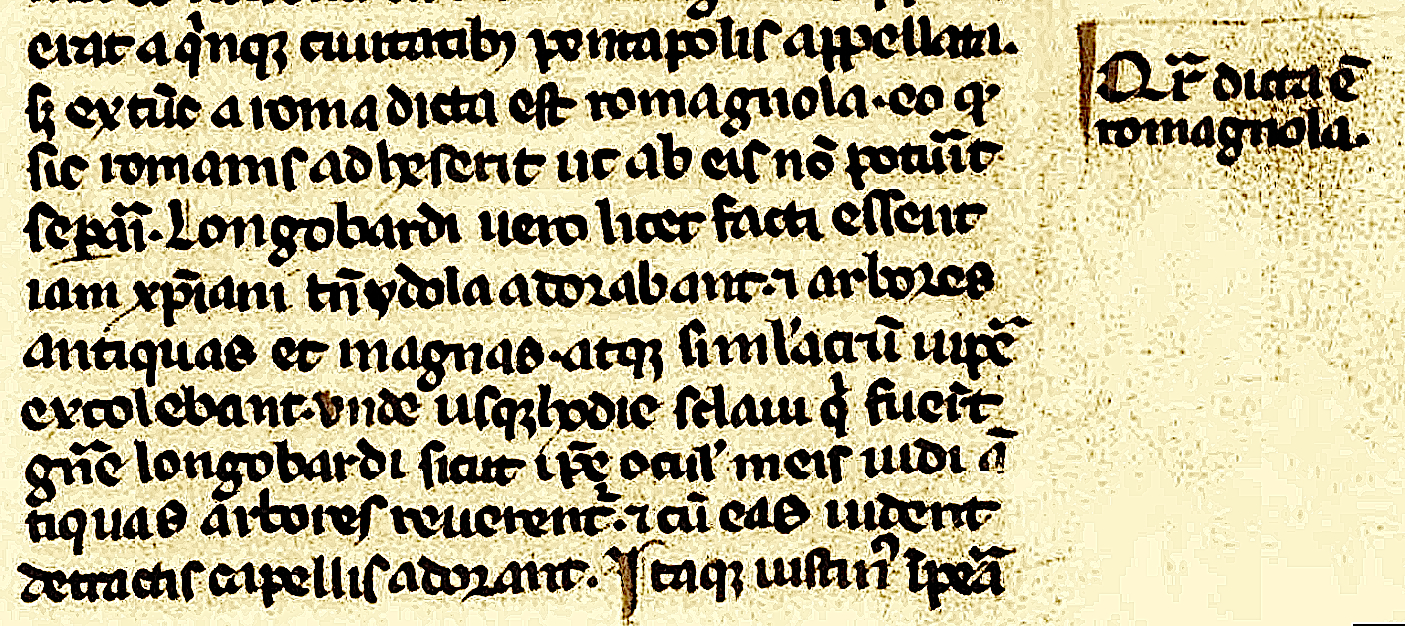 erat a qͥnqꝫ ciuitatibꝯ pentapolis appellata.
sꝫ ex tūc a roma dicta est romagnola. eo qꝫ
sic romanis adheserit ut ab eis nō potuīt
sepaī. Longobardi uero licet facti essent
iam xp̄iani tn̄ ydola adorabant. ⁊ arbores
antiquas et magnas. atqꝫ siml'acrū uipē
excolebant. vnde usqꝫ hodie sclaui qͥ fuer̄t
gn̄e longobardi sicut ip̄e ocul' meis uidi ā
tiquas arbores reuerent᷑. ⁊ cū eas uident
detractis capellis adorant. Itaqꝫ iustinꝰ īpeā
Qr̄ dicta ē
romagnola.